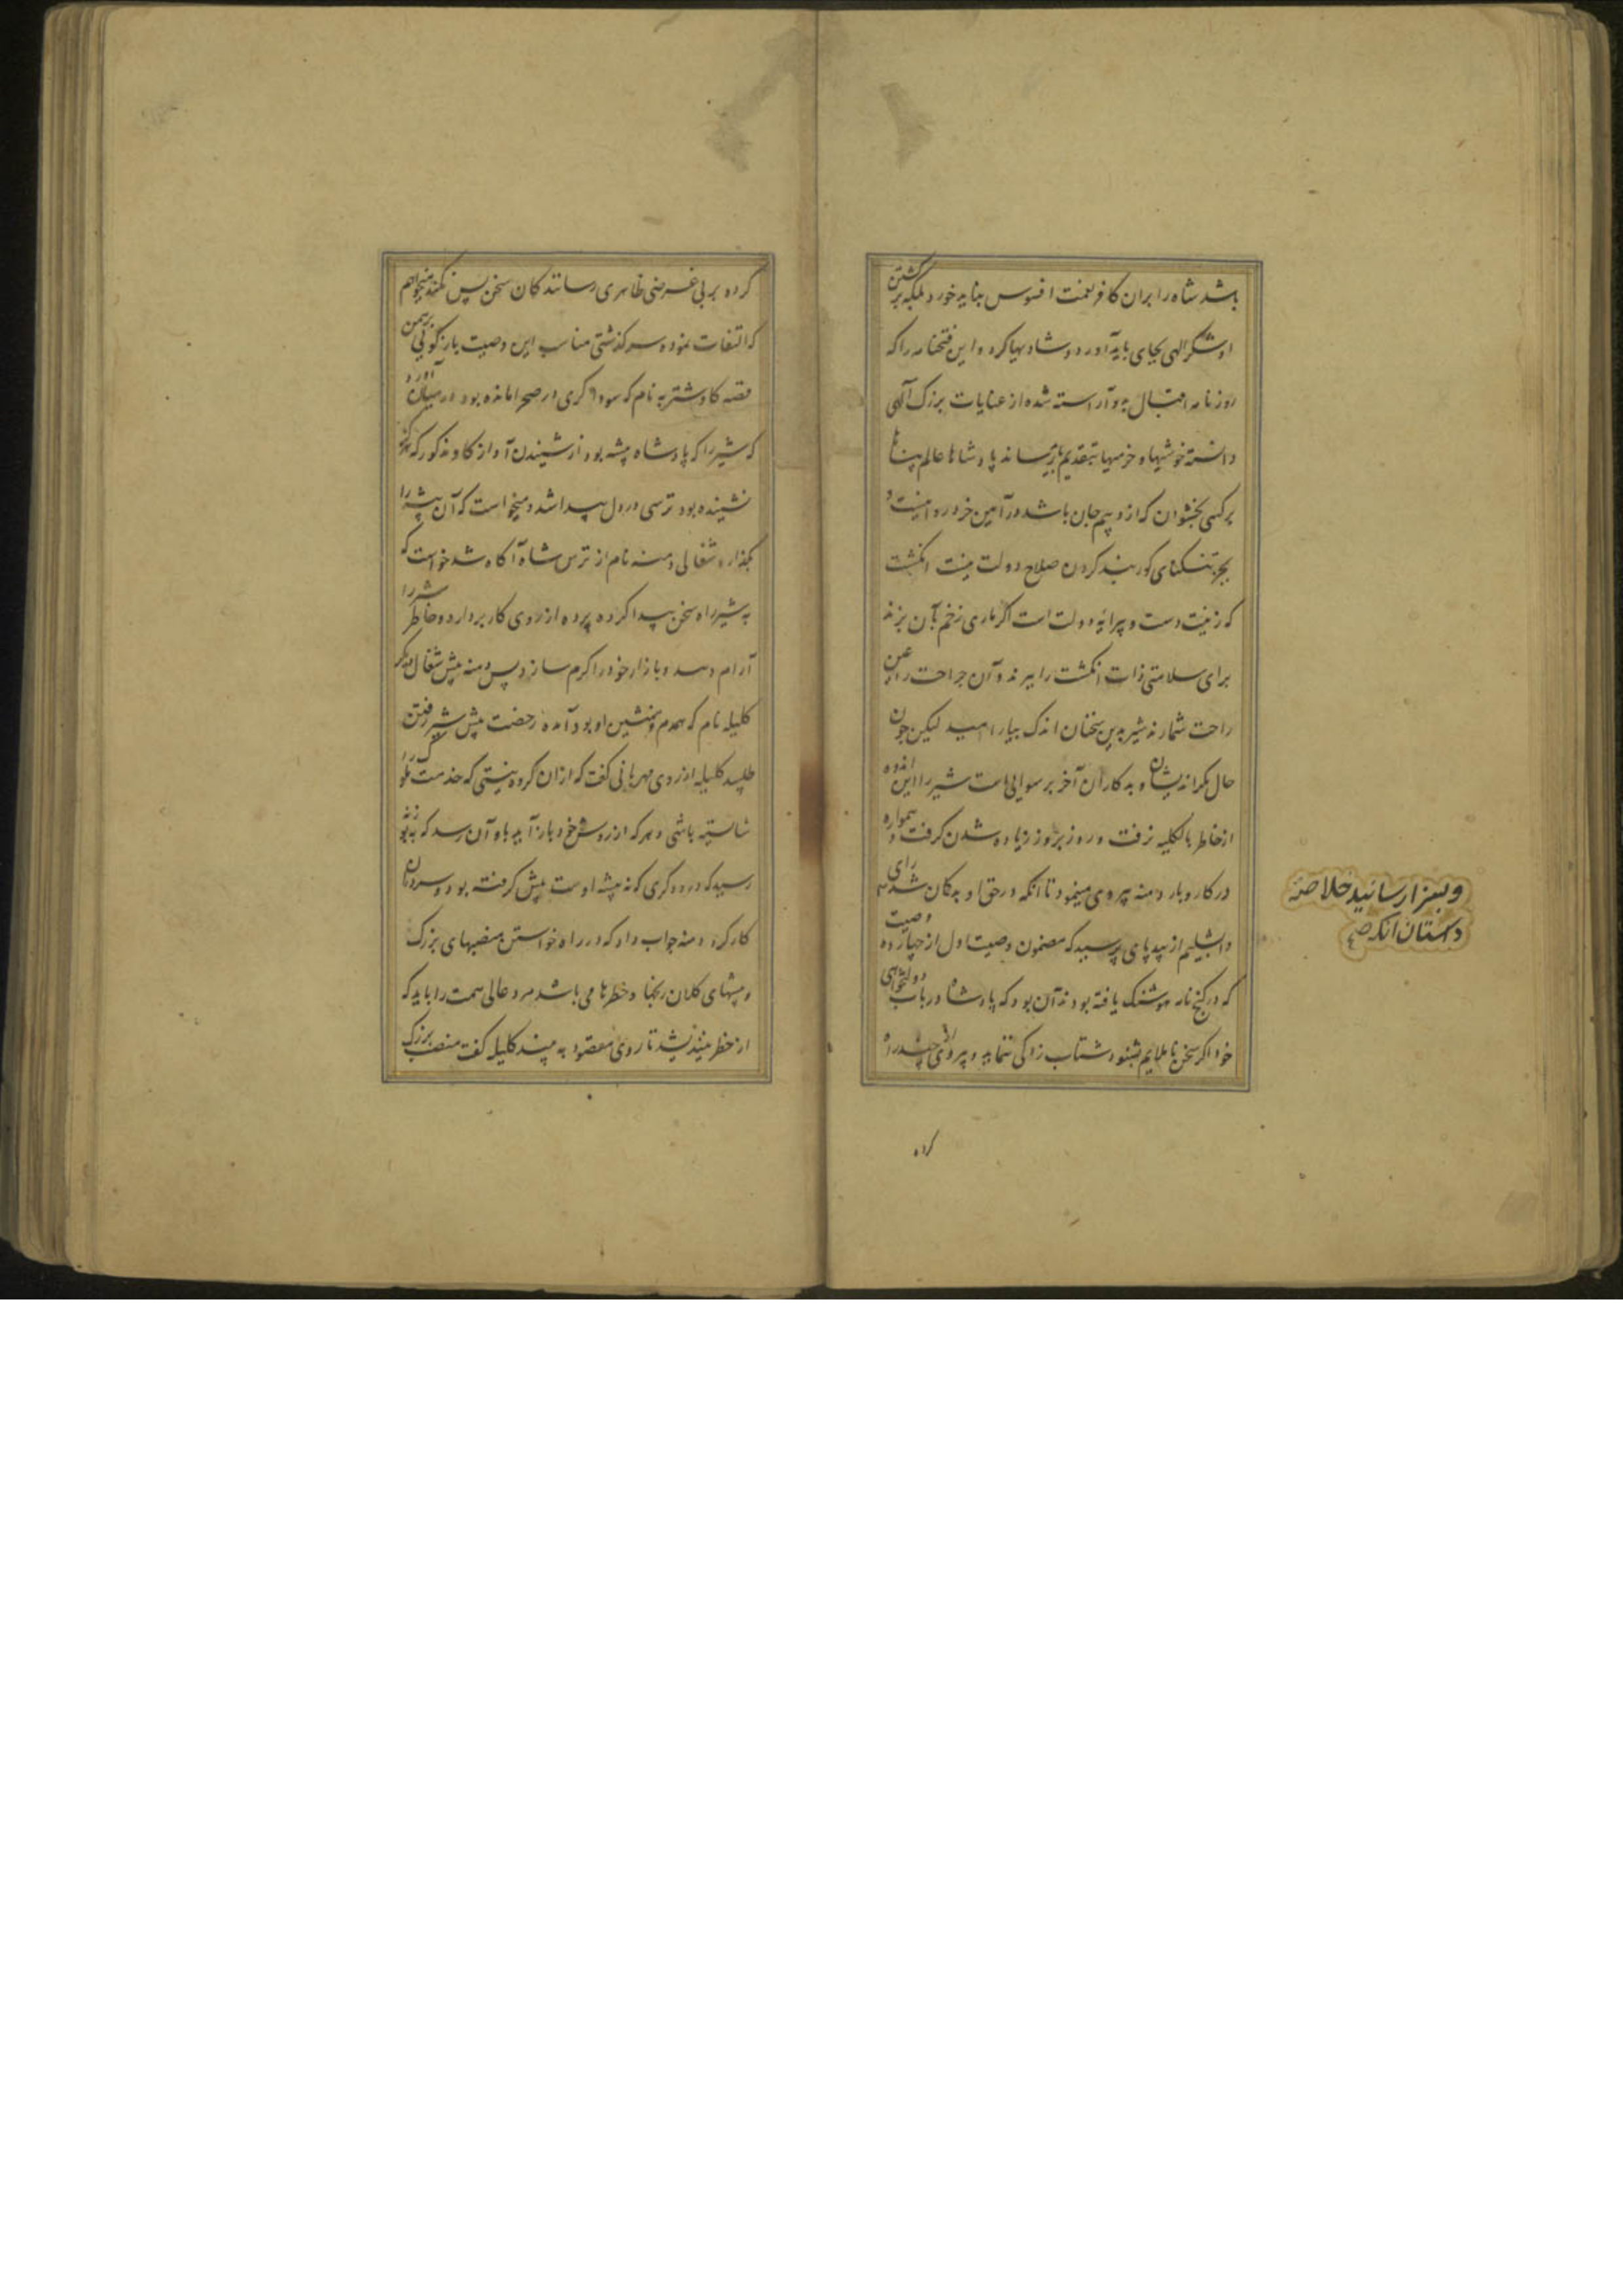 باشد شاه را بران کافر نعمت افسوس نباید خورد بلکه بر کشتن
او شکر الهی بجای باید آورد و شادیها کرد و این فتحنامه را که
روزنامه اقبال بدو آراسته شده از عنایات بزرک آلهی
دانسته خوشیها و خرمیها بتقدیم باید رساند پادشاها عالم پناها
بر کسی بخشودن که ازو بیم جان باشد در آیین خرد روا نیست و
بجز تنکنای کور بند کردن صلاح دولت نیست انکشت
که زینت دست و پیرایه دولت است اکر ماری زخم بآن بزند
برای سلامتی ذات انکشت را ببرند و آن جراحت را عین
راحت شمارند شیر بدین سخنان اندک بیارامید لیکن چون
حال بداندیشان و بدکاران آخر برسوایی است شیر را این اندوه
از خاطر بالکلیه نرفت و روز بروز زیاده شدن کرفت و همواره
در کار و بار دمنه پیروی مینمود تا انکه در حق او بدکان شد رای
دابشلیم از بیدپای پرسید که مضمون وصیت اول از چهارده وصیت
که در کنج نامه هوشنک یافته بودند آن بود که پادشاه در باب دولتخواهی
خود اکر سخن ناملایم شنود شتاب زدکی ننماید و پیروی چند راه
کرده
و بسزا رسانید خلاصه
داستان انکه صح
کرده بر بی غرضی ظاهری رسانندکان سخن بس نکند میخواهم
که التفات نموده سرکذشتی مناسب این وصیت باز کویی برهمن
قصه کاو شنزبه نام که سوداکری در صحرا مانده بود در میان آورد
که شیر را که پادشاه بیشه بود از شنیدن آواز کاو مذکور که هرکز
نشنیده بود ترسی در دل پیدا شد و میخواست که آن بیشه را
بکذارد شغالی دمنه نام از ترس شاه آکاه شد خواست که
به شیر راه سخن پیدا کرده پرده از روی کار بردارد و خاطر شیر را
آرام دهد و بازار خود را کرم سازد پس دمنه پیش شغال دیکر
کلیله نام که همدم و همنشین او بود آمده رخصت پیش شیر رفتن
طلبید کلیله از روی مهربانی کفت که ازان کروه نیستی که خدمت ملوک را
شایسته باشی و هر که از روش خود باز آید باو آن رسد که به بوزنه
رسید که درودکری که نه پیشه اوست پیش کرفته بود و سر در آن
کار کرد دمنه جواب داد که در راه خواستن منصبهای بزرک
و پیشهای کلان رنجها و خطرها می باشد مرد عالی همت را باید که
از خطر نیندیشد تا روی مقصود به بیند کلیله کفت منصب بزرک